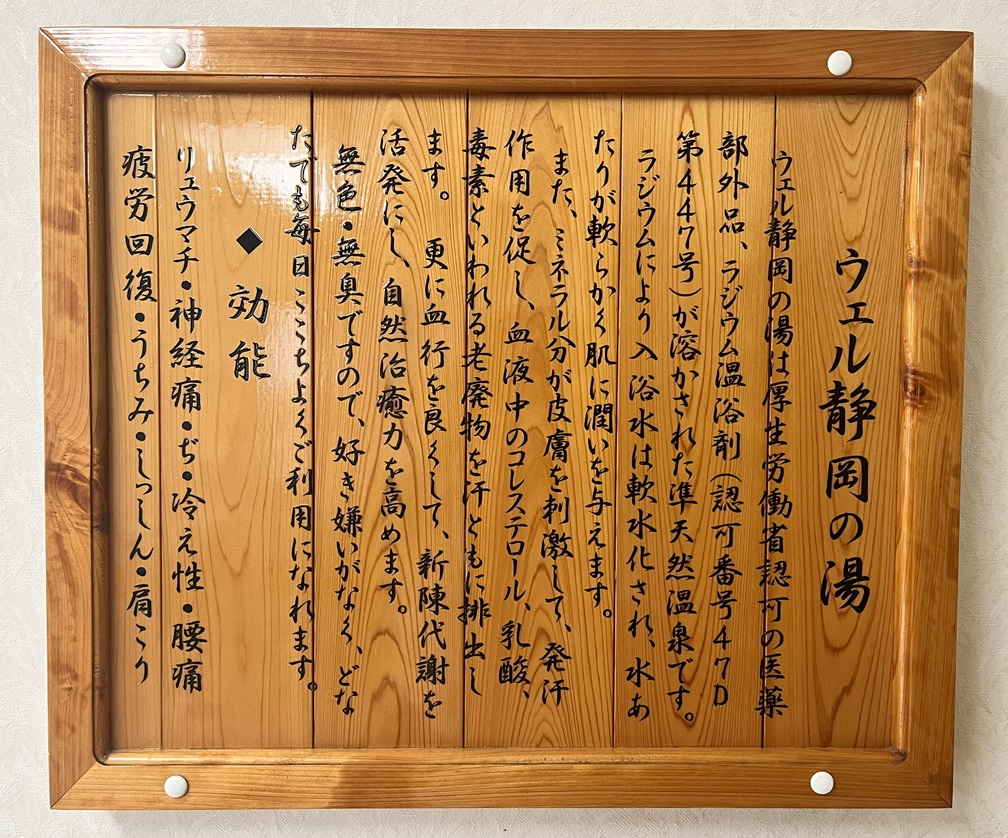 ウェル静岡の湯
ウェル静岡の湯は厚生労働省認可の医薬
部外品、ラジウム温浴剤(認可番号47D
第447号)が溶かされた準天然温泉です。
ラジウムにより入浴水は軟水化され、水あ
たりが軟らかく肌に潤いを与えます。
また、ミネラル分が皮膚を刺激して、発汗
作用を促し、血液中のコレステロール、乳酸、
毒素といわれる老廃物を汗とともに排出し
ます。 更に血行を良くして、新陳代謝を
活発にし、自然治癒力を高めます。
無色・無臭ですので、好き嫌いがなく、どな
たでも毎日ここちよくご利用になれます。
◆ 効能
リュウマチ・神経痛・ぢ・冷え性・腰痛
疲労回復・うちみ・しっしん・肩こり